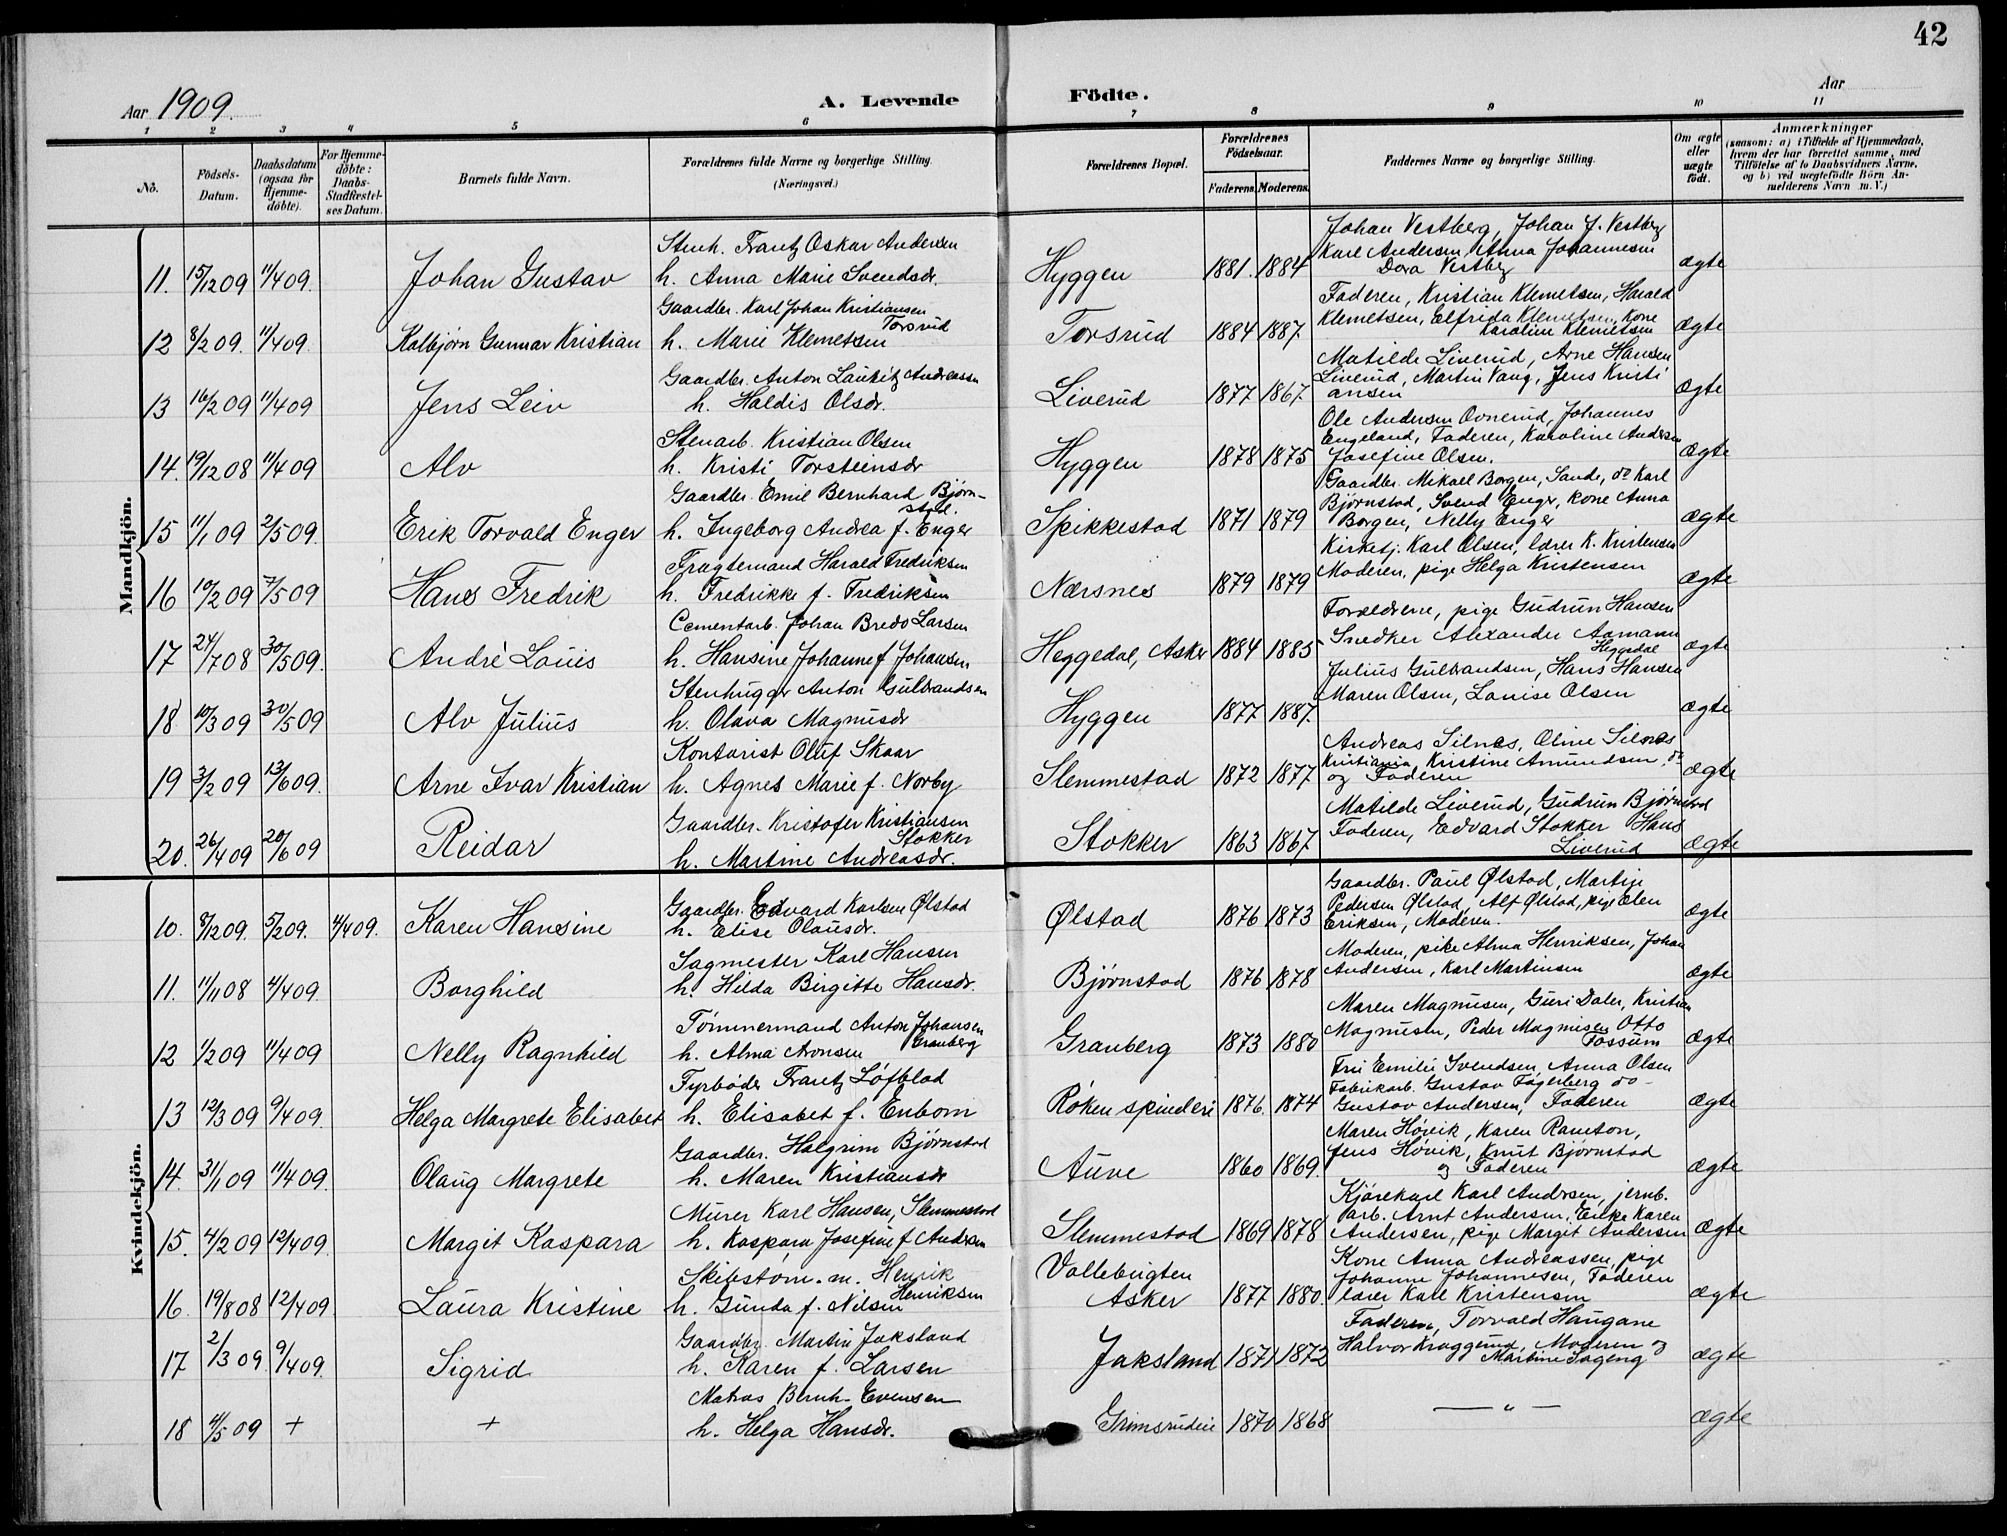 42
Aar 1909.
A. Levende Födte.
Aar
1 2 3 4 5 6 7 8 9 10 11
No.
Födsels-Datum.
Daabsdatum (ogsaa for Hjemme-döbte).
For Hjemme-döbte: Daabs-Stadfæstel-ses Datum.
Barnets fulde Navn.
Forældrenes fulde Navne og borgerlige Stilling. (Næringsvei.)
Forældrenes Bopæl.
Forældrenes Födselsaar.
Faderens. Moderens.
Faddernes Navne og borgerlige Stilling.
Om ægte eller uægte født.
Anmærkninger
(saasom: a) i Tilfælde af Hjemmedaab, hvem der har forrettet samme, med Tilföielse af to Daabsvidners Navne, og b) ved uægtefödte Börn An-melderens Navn m. V.)
Mandkjön.
11. 15/12 09 11/4 09. Johan Gustav
Stenh. Frantz Oskar Andersen
h. Anna Marie Svendsdr.
Hyggen 1881. 1884
Johan Vestberg, Johan J. Vestberg
Karl Andersen, Anna Johannesen
Dora Vestberg
ægte
12 8/2 09. 11/4 09. Kolbjörn Gunnar Kristian
Gaardbr. Karl Johan Kristiansen
Torsrud
h. Marie Klemetsen
Torsrud 1884 1887.
Faderen, Kristian Klemetsen, Harald
Klemetsen, Elfrida Klemetsen, Kone
Karoline Klemetsen
ægte
13 16/2 09 11/4 09 Jens Leiv
Gaardbr. Anton Lauritz Andreassen
h. Haldis Olsdr.
Liverud 1877 1867.
Matilde Liverud, Arne Hansen
Liverud, Martin Vang, Jens Kristi
ansen
ægte
14. 19/12 08 11/4 09 Alv
Stenarb. Kristian Olsen
h. Kristi Torsteinsdr
Hyggen 1878 1875
Ole Andersen Ovnerud, Johannes
Engeland, Faderen, Karoline Andersen
Josefine Olsen.
ægte
15 11/1 09 2/5 09. Erik Torvald Enger
Gaardbr. Emil Bernhard Björn-
stad.
h. Ingeborg Andrea f. Enger
Spikkestad 1871 1879
Gaardbr. Mikael Borgen, Sande, do Karl
Bjørnstad, Svend Enger, kone Anna
Borgen, Nelly Enger
ægte
16 10/2 09 7/5 09 Hans Fredrik
Fragtemand Harald Fredriksen
h. Fredrikke f. Fredriksen
Nærsnes 1879 1879
Kirketj. Karl Olsen, lærer K. Kristensen
Moderen, pige Helga Kristensen
ægte
17 24/7 08 30/5 09. André Louis
Cementarb. Johan Bredo Larsen
h. Hansine Johanne f Johansen
Heggedal, Asker 1884 1885
Forældrene, pige Gudrun Hansen
Snedker Alexander Aamann
Heggedal
ægte
18 10/3 09 30/5 09 Alv Julius
Stenhugger Anton Gulbrandsen
h. Olava Magnusdr
Hyggen 1877 1887.
Julius Gulbrandsen, Hans Hansen
Maren Olsen, Louise Olsen
ægte
19 3/2 09 13/6 09. Arne Ivar Kristian
Kontorist Oluf Skaar
h. Agnes Marie f. Norby
Slemmestad 1872 1877
Andreas Silnes, Oline Silnes
Kristiania, Kristine Amundsen, do
og Faderen
ægte
20. 26/4 09 20/6 09 Reidar
Gaardbr. Kristofer Kristiansen
Stokker
h. Martine Andreasdr.
Stokker 1863 1867
Matilde Liverud, Gudrun Bjørnstad
Faderen, Edvard Stokker Hans
Liverud
ægte
Kvindekjön.
10. 8/12 09. 5/2 09. 4/4 09. Karen Hansine
Gaardbr. Edvard Karlsen Ølstad
h. Elise Olausdr.
Ølstad 1876 1873
Gaardbr. Paul Ølstad, Martin
Pedersen Ølstad, Alf Ølstad, pige Elen
Eriksen, Moderen.
ægte
11. 11/11 08 4/4 09 Borghild
Sagmester Karl Hansen
h. Hilda Birgitte Hansdr.
Bjørnstad 1876 1878
Moderen, pike Alma Henriksen, Johan
Andersen, Karl Martinsen
ægte
12 1/2 09 11/4 09 Nelly Ragnhild
Tömmermand Anton Johansen
Granberg
h. Alma Aronsen
Granberg 1873 1880
Maren Magnusen, Guri Daler, Kristian
Magnusen, Peder Magnusen Otto
Fossum
ægte
13 12/3 09 9/4 09. Helga Margrete Elisabet
Fyrbøder Frantz Löfblad
h. Elisabet f. Enbom
Røken spinderi 1876. 1874
Fru Emilie Svendsen, Anna Olsen
Fabrikarb. Gustav Fagerberg do
Gustav Andersen, Faderen
ægte
14. 31/1 09 11/4 09. Olaug Margrete
Gaardbr. Halgrim Björnstad
h. Maren Kristiansdr
Auve 1860 1869.
Maren Høvik, Karen Ramton,
Jens Høvik, Knut Bjørnstad
og Faderen
ægte
15. 4/2 09 12/4 09. Margit Kaspara
Murer Karl Hansen, Slemmestad
h. Kaspara Josefine f Andersen
Slemmestad 1869 1878
Kjørekarl Karl Andersen, jernb.
arb. Arnt Andersen, Enke Karen
Andersen, pige Margit Andersen
ægte
16. 19/8 08 12/4 09. Laura Kristine
Skibstøm. m. Henrik
Henriksen
h. Gunda f. Nilsen
Vollebugten
Asker 1877 1880.
Kone Anna Andreassen, pige
Johanne Johannesen, Faderen
lærer Karl Kristensen
ægte
17 2/3 09 9/4 09. Sigrid
Gaardbr. Martin Jaksland
h. Karen f. Larsen
Jaksland 1871 1872
Faderen, Torvald Haugane
Halvor Kraggerud, Moderen og
Martine Sageng
ægte
18 4/5 09 + +
Matros Bernh. Evensen
h. Helga Hansdr.
Grimsrudeie 1870 1868
— „ —
ægte